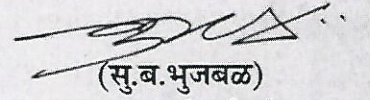 (सु.ब.भुजबळ)